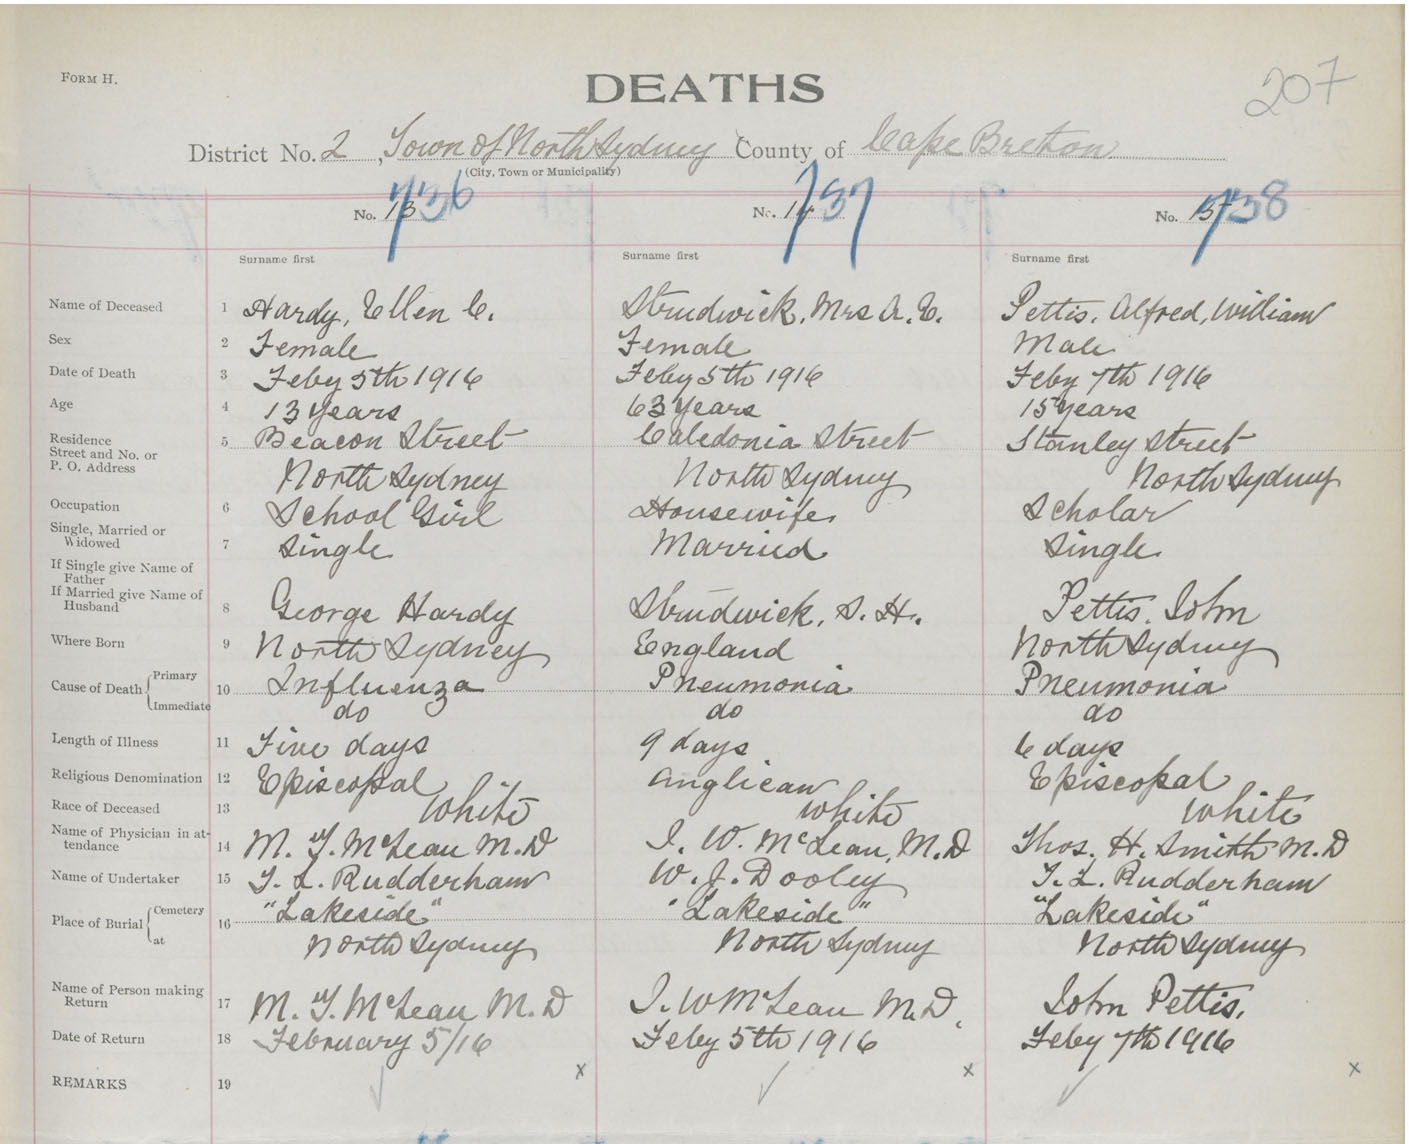 FORM H.
DEATHS
207
District No. 2, Town of North Sydney County of Cape Breton
(City, Town or Municipality)
No. 13 736 No. 14 737 No. 15 738
Surname first Surname first Surname first
Name of Deceased 1 Hardy, Ellen C. Strudwick, Mrs A. E. Pettis, Alfred, William
Sex 2 Female Female Male
Date of Death 3 Feby 5th 1916 Feby 5th 1916 Feby 7th 1916
Age 4 13 years 63 years 15 years
Residence
Street and No. or 5 Beacon Street Caledonia Street Stanley Street
P. O. Address North Sydney North Sydney North Sydney
Occupation 6 School Girl Housewife Scholar
Single, Married or
Widowed 7 Single Married Single
If Single give Name of
Father
If Married give Name of
Husband 8 George Hardy Strudwick, S. H. Pettis, John
Where Born 9 North Sydney England North Sydney
Cause of Death Primary 10 Influenza Pneumonia Pneumonia
Immediate do do do
Length of Illness 11 Five days 9 days 6 days
Religious Denomination 12 Episcopal Anglican Episcopal
Race of Deceased 13 White White White
Name of Physician in at-
tendance 14 M. T. McLean M.D I. W. McLean, M.D Thos. H. Smith M.D
Name of Undertaker 15 T. L. Rudderham W. J. Dooley T. L. Rudderham
Place of Burial Cemetery 16 "Lakeside" "Lakeside" "Lakeside"
at North Sydney North Sydney North Sydney
Name of Person making
Return 17 M. T. McLean M.D I. W McLean M.D. John Pettis.
Date of Return 18 February 5/16 Feby 5th 1916 Feby 7th 1916
REMARKS 19 x x x